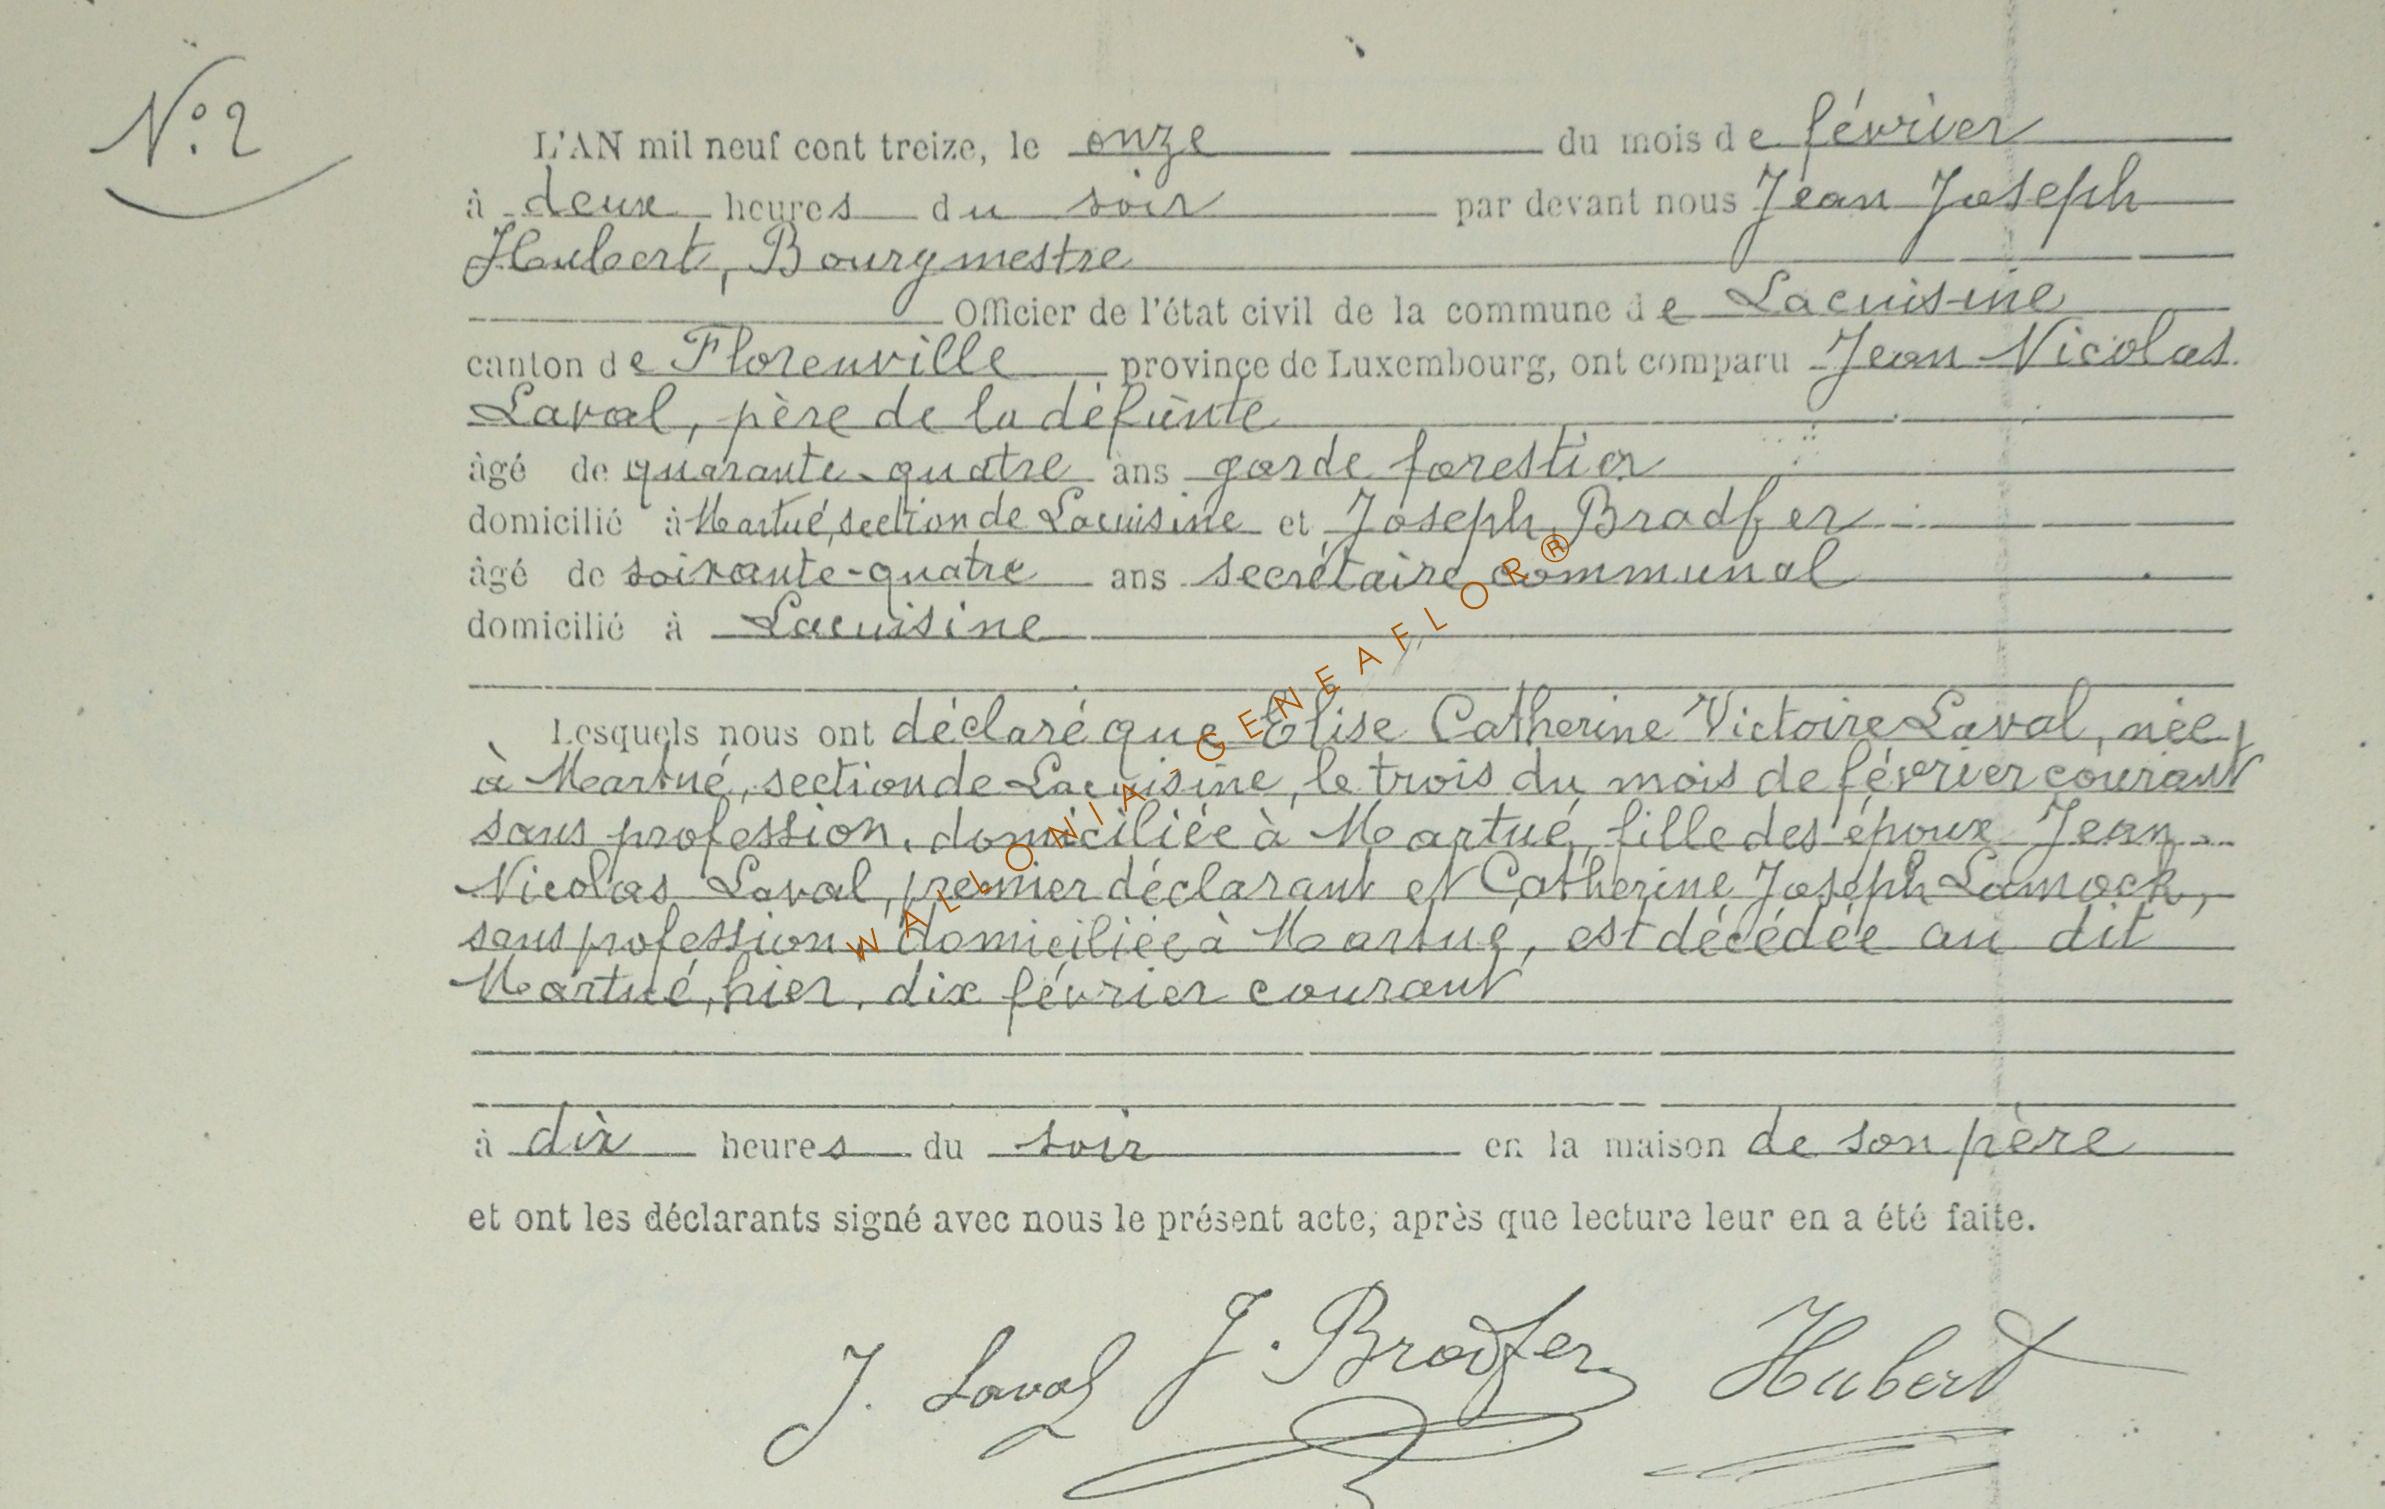 N° 2
L'AN mil neuf cent treize, le onze du mois de février
à deux heures du soir par devant nous Jean Joseph
Hubert, Bourgmestre
Officier de l'état civil de la commune de Lacuisine
canton de Florenville province de Luxembourg, ont comparu Jean Nicolas
Laval, père de la défunte
âgé de quarante-quatre ans garde forestier
domicilié à Martué, section de Lacuisine et Joseph Bradfer
âgé de soixante-quatre ans secrétaire communal
domicilié à Lacuisine
Lesquels nous ont déclaré que Elise Catherine Victoire Laval, née
à Martué, section de Lacuisine, le trois du mois de février courant
sans profession, domiciliée à Martué, fille des époux Jean
Nicolas Laval, premier déclarant et Catherine Joseph Lamock,
sans profession, domiciliée à Martué, est décédée au dit
Martué, hier, dix février courant
à dix heures du soir en la maison de son père
et ont les déclarants signé avec nous le présent acte, après que lecture leur en a été faite.
J. Laval J. Bradfer Hubert
WALLONIA-GENEAFLOR®